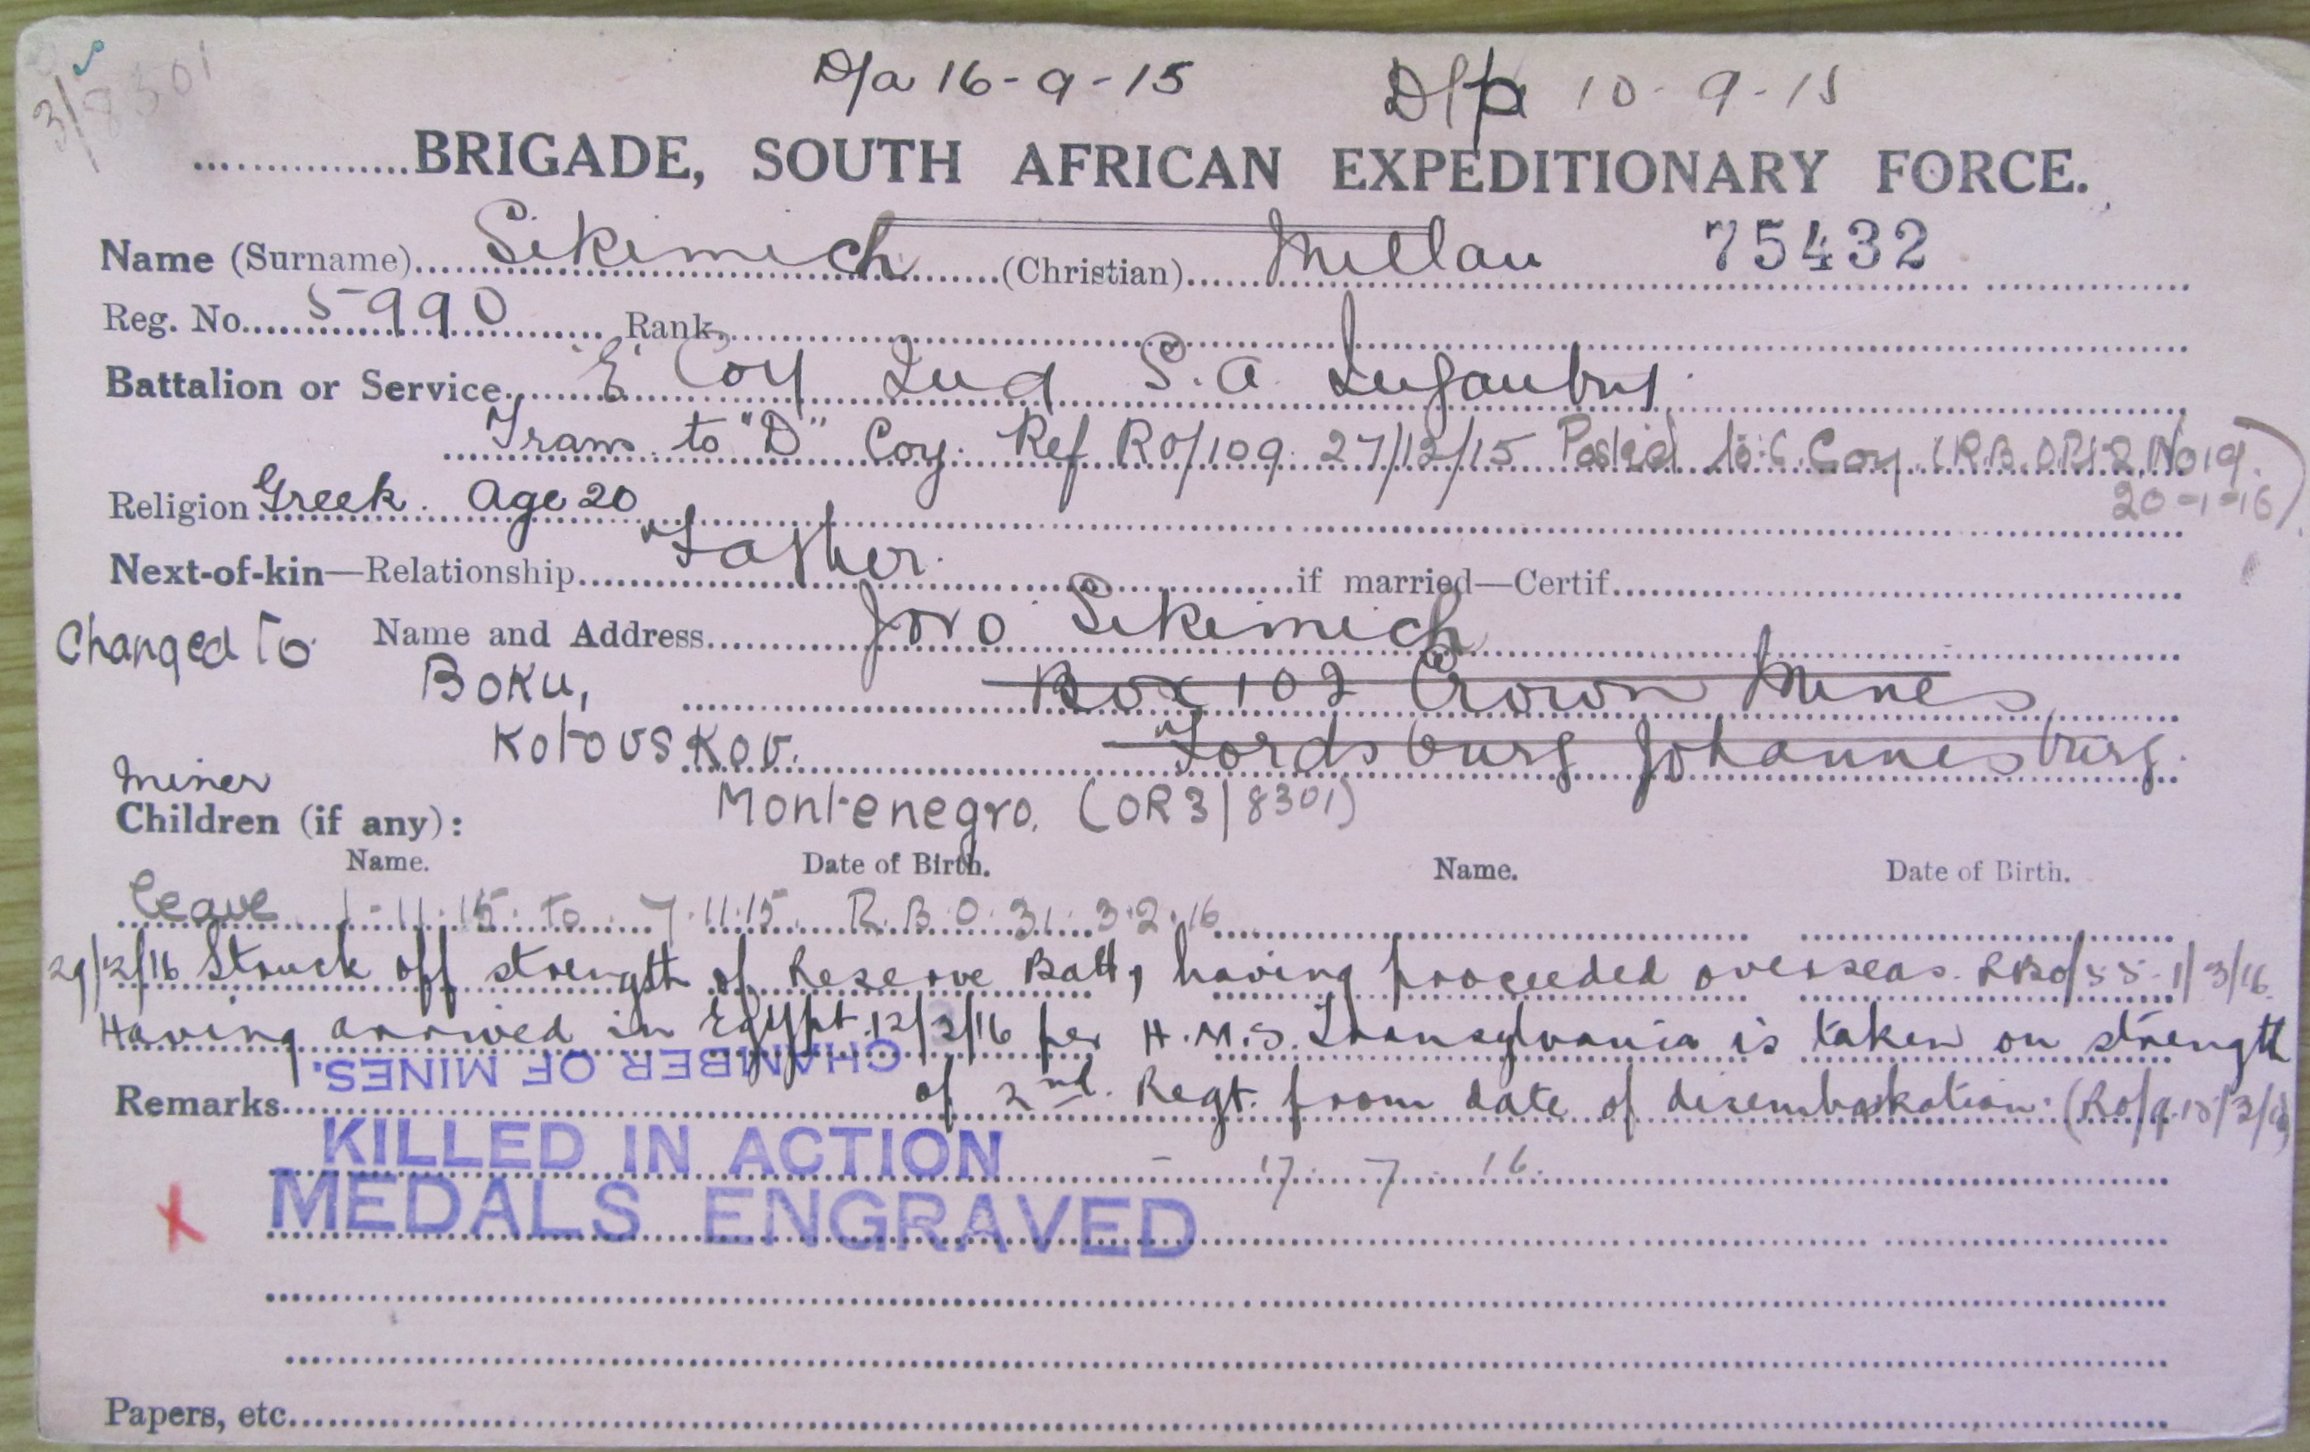 3/8301
D/a 16-9-15 D/p 10-9-15
BRIGADE, SOUTH AFRICAN EXPEDITIONARY FORCE.
Name (Surname) Sikimich (Christian) Millan 75432
Reg. No. 5990 Rank
Battalion or Service "E" Coy 2nd S.A. Infantry.
Trans. to "D" Coy. Ref RO/109 27/12/15 Posted to C. Coy. (R.B.ORS.2.No19.
20-1-16)
Religion Greek. Age 20
Next-of-kin—Relationship Father. if married—Certif.
Changed To Name and Address Jovo Sikimich
Boku, Box 102 Crown Mines
Kotovskov. Fordsburg Johannesburg.
Miner
Montenegro. (OR3/8301)
Children (if any):
Name. Date of Birth. Name. Date of Birth.
Leave 1-11-15. to 7.11.15. R.B.O. 31. 3.2.16
29/2/16 Struck off strength of Reserve Batt, having proceeded overseas. RBO/55-1/3/16.
Having arrived in Egypt 12/3/16 per H.M.S. Transylvania is taken on strength
CHAMBER OF MINES.
Remarks of 2nd. Regt. from date of disembarkation. (RO/9.15/3/16)
KILLED IN ACTION - 17. 7. 16.
x MEDALS ENGRAVED
Papers, etc.